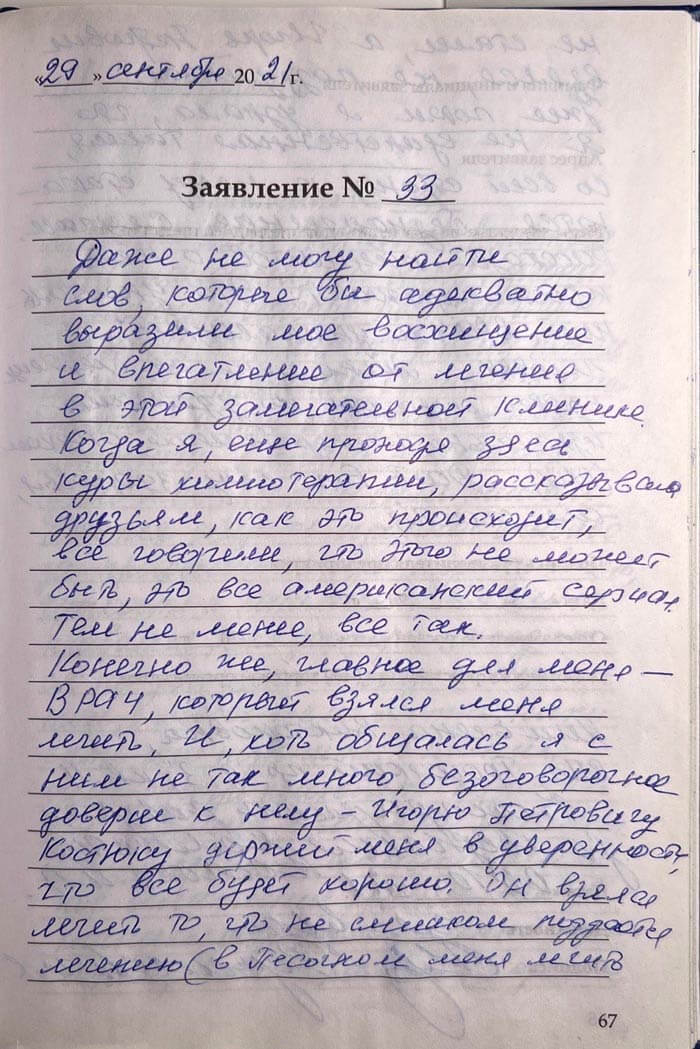 «29» сентября 2021 г.
Заявление № 33
Даже не могу найти
слов, которые бы адекватно
выразили мое восхищение
и впечатление от лечения
в этой замечательной клинике.
Когда я, еще проходя здесь
куры химиотерапии, рассказывала
друзьям, как это происходит,
все говорили, что этого не может
быть, это все американский сериал.
Тем не мение, все так.
Конечно же, главное для меня —
ВРАЧ, который взялся меня
лечить, И, хоть общалась я с
ним не так много, безоговорочное
доверие к нему – Игорю Петровичу
Костюку держит меня в уверенности,
что все будет хорошо. Он взялся
лечить то, что не слишком поддается
лечению (в Песочном меня лечить
67